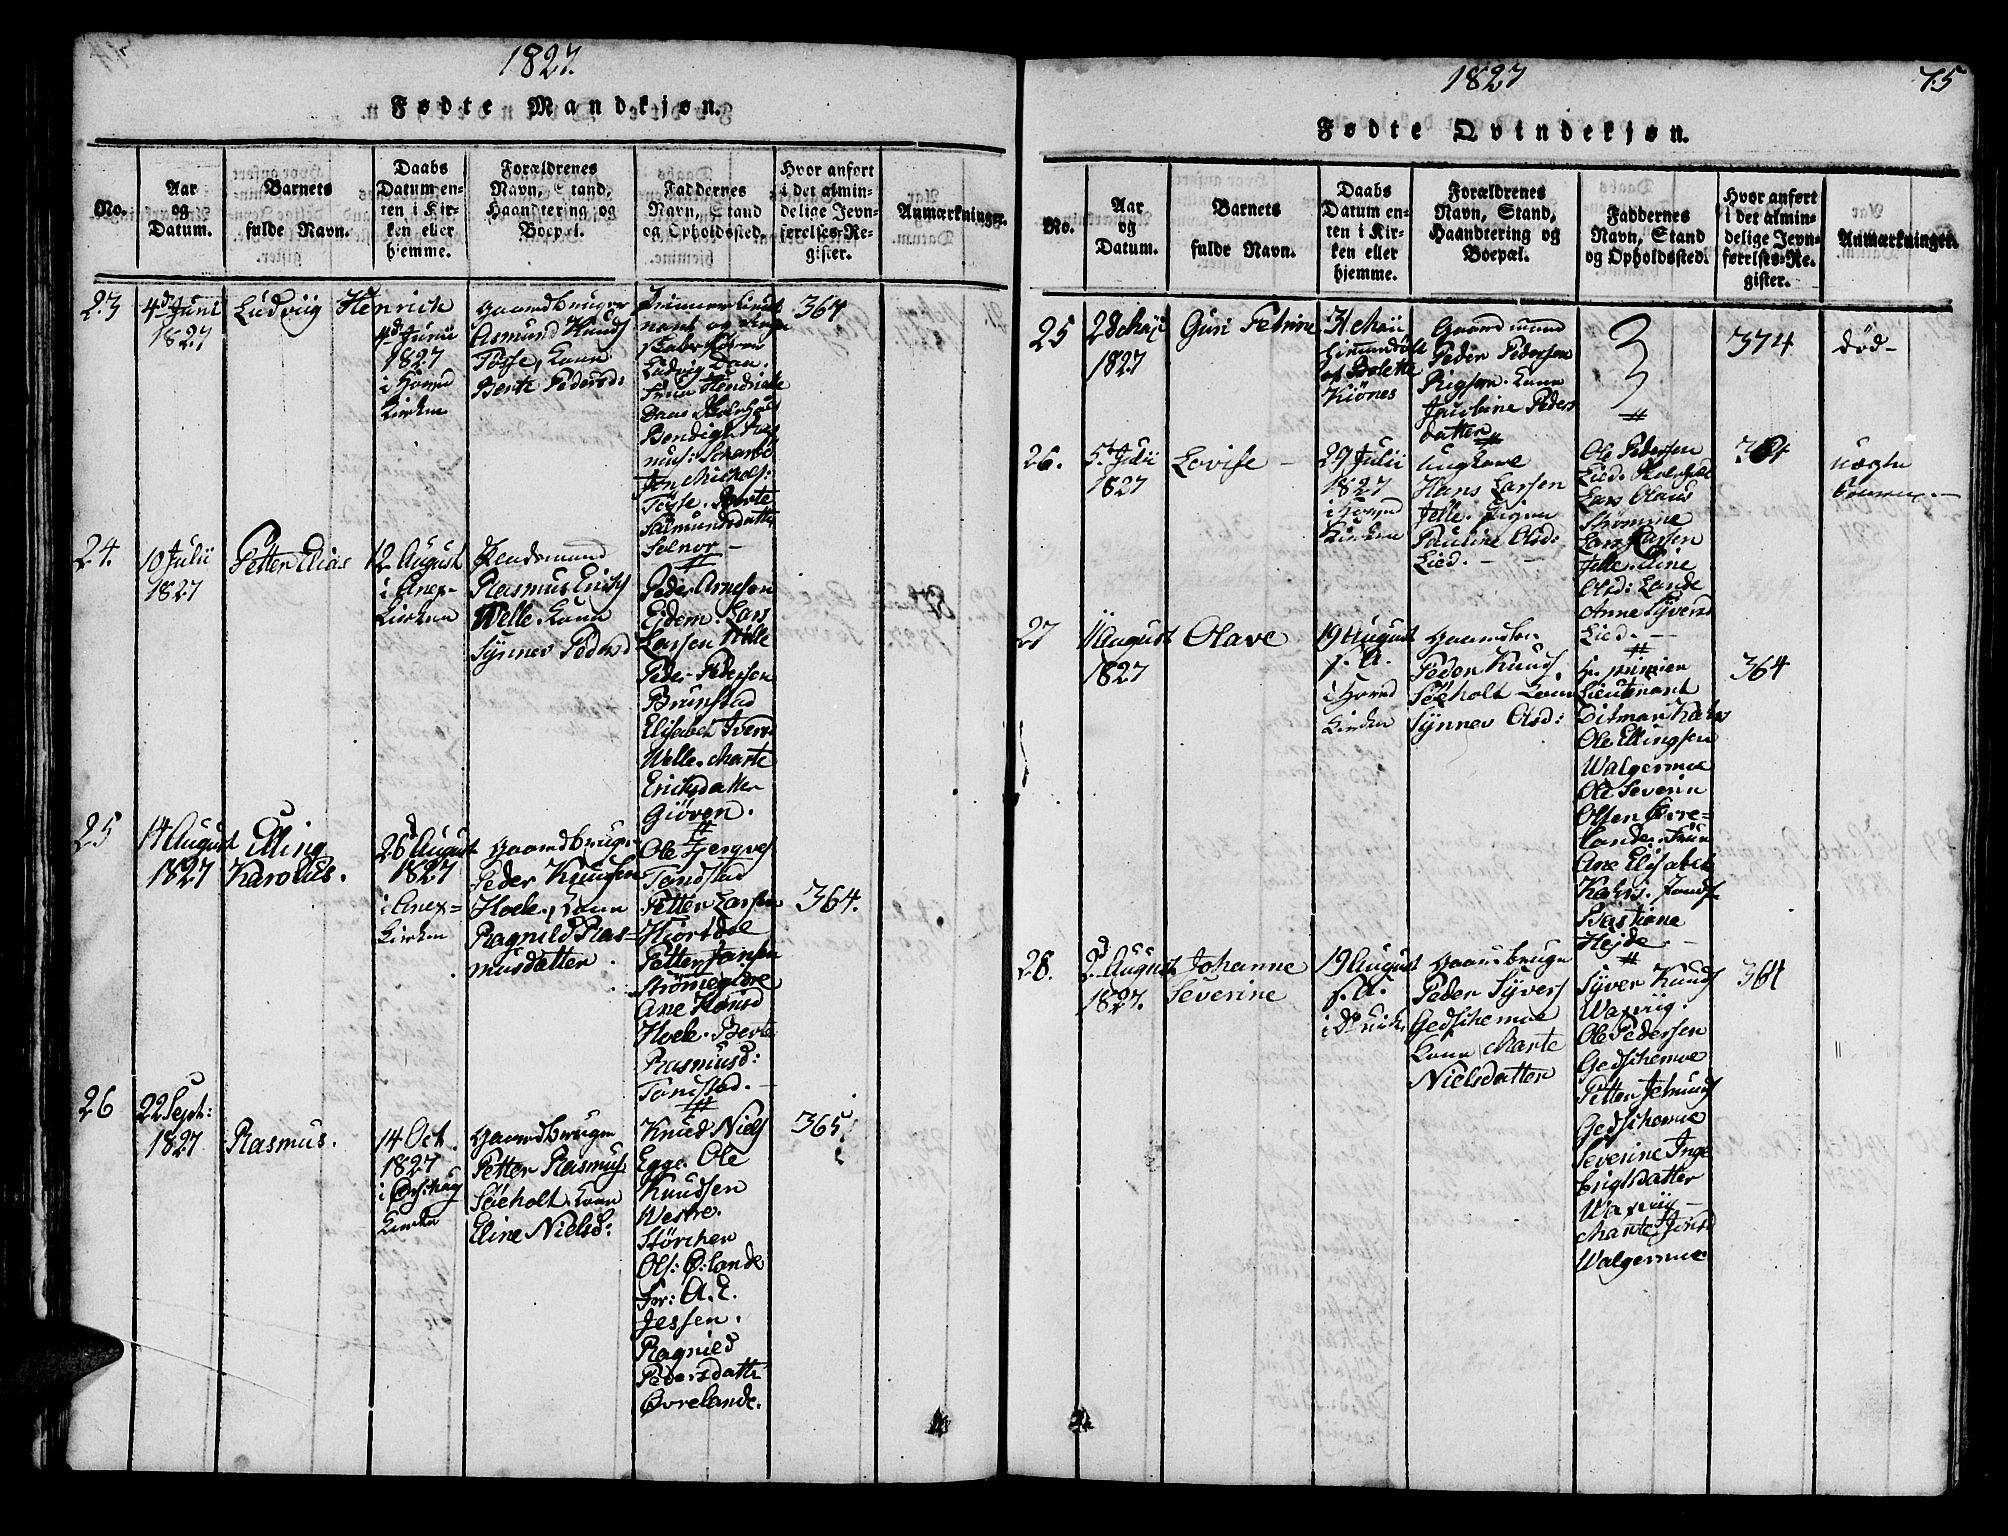 1827.
Fødte Mandkjøn.
No.
Aar
og
Datum.
Barnets
fulde Navn.
Daabs
Datum en-
ten i Kir-
ken eller
hjemme.
Forældrenes
Navn, Stand,
Haandtering og
Boepæl.
Faddernes
Navn, Stand
og Opholdssted.
Hvor anført
i det almin-
delige Jevn-
førelses-Re-
gister.
Anmærkninger.
23
4de Juni
1827
Ludvig Henrich
4de Junii
1827
i Hovud
Kirken
Gaardbruger
Asmund Knuds
Tosse, Kone
Berte Pedersd:
Ludvig Daae.
Bendigt
Tosse. Berte
Salmundsdatter
Solnor
364
24.
10 Julii
1827
Petter Elias
12 August
i Anex-
Kirken
Rasmus Erichs
Welle. Kone
Synnev Pedersd
Peder Arnesen
Ejdem. Lars
Larsen Welle
Peder Pedersen
Brunstad
Elisabeth Iversd
Welle. Marte
Ericksdatter
Giöven.
25
14 August
1827
Elling
Karolus.
26 August
1827
i Anex=
Kirken
Gaardbruger
Peder Knudsen
Hoele. Kone
Ragnild Ras=
musdatter.
Ole
Tandstad
Petter Larsen
Hjortdal
Petter Jansen
Strömegjöre
Ane
Hoele. Berte
Rasmusd:
Tandstad.
364.
26
22 Sept:
1827
Rasmus.
14 Oct.
1827
i Ørschoug
Kirke
Gaardbruger
Petter Rasmus
Söeholt. Kone
Eline Nielsd:
Knud Niels
Egge. Ole
Knudsen
Westre.
Störcher
Ols: Ølande
Fr: A. E.
Jessen.
Ragnild
Pedersdatt
Øvrelande.
365.
1827
75
Fødte Qvindekjøn.
No.
Aar
og
Datum.
Barnets
fulde Navn.
Daabs
Datum en-
ten i Kir-
ken eller
hjemme.
Forældrenes
Navn, Stand,
Haandtering og
Boepæl.
Faddernes
Navn, Stand
og Opholdssted.
Hvor anført
i det almin-
delige Jevn-
førelses-Re-
gister.
Anmærkninger.
25
28 Maji
1827
Guri Petrine
31 Maii
Hiemmedöbt
af Bolette
Kiönes
Gaardmand
Peder Pedersen
Rigsem. Kone
Jacobine Peders
datter
374
död-
26.
5. Julii
1827
Lovise
29 Julii
1827
i Hovud
Kirken
Ungkarl
Hans Larsen
Jelle. Pigen
Pauline Olsd:
Lied.
Ole Pedersen
Lied.
Lars Olaus
Strömme
Lars Larsen
Jelle. Eline
Olsd: Lande
Anne Syvers
Lied.
364
uægte
27
11 August
1827
Olave
19 August
s. A.
i Hovud
Kirken
Peder Knuds.
Söeholt Kone
Synnev Olsd:
Hr. premier
Lieutenant
Ditmar Kahrs
Ole Ellingsen
Walgermoe
Ole Severin
Olsen Øvre=
lande. Frue
Ane Elisabeth
Kahrs.
Bastiane
Hejde
364
28.
2d August
1827.
Johanne
Severine
19 August
s. A.
Gaardbruger
Peder Syvers
Gedschemoe
Kone Marte
Nielsdatter
Syver Knuds
Waxvig.
Ole Pedersen
Gedschemoe
Petter Jetmunds
Gedschemoe
Severine Inge
brigtsdatter
Waxvig
Marte Jonsd
Walgermoe
364